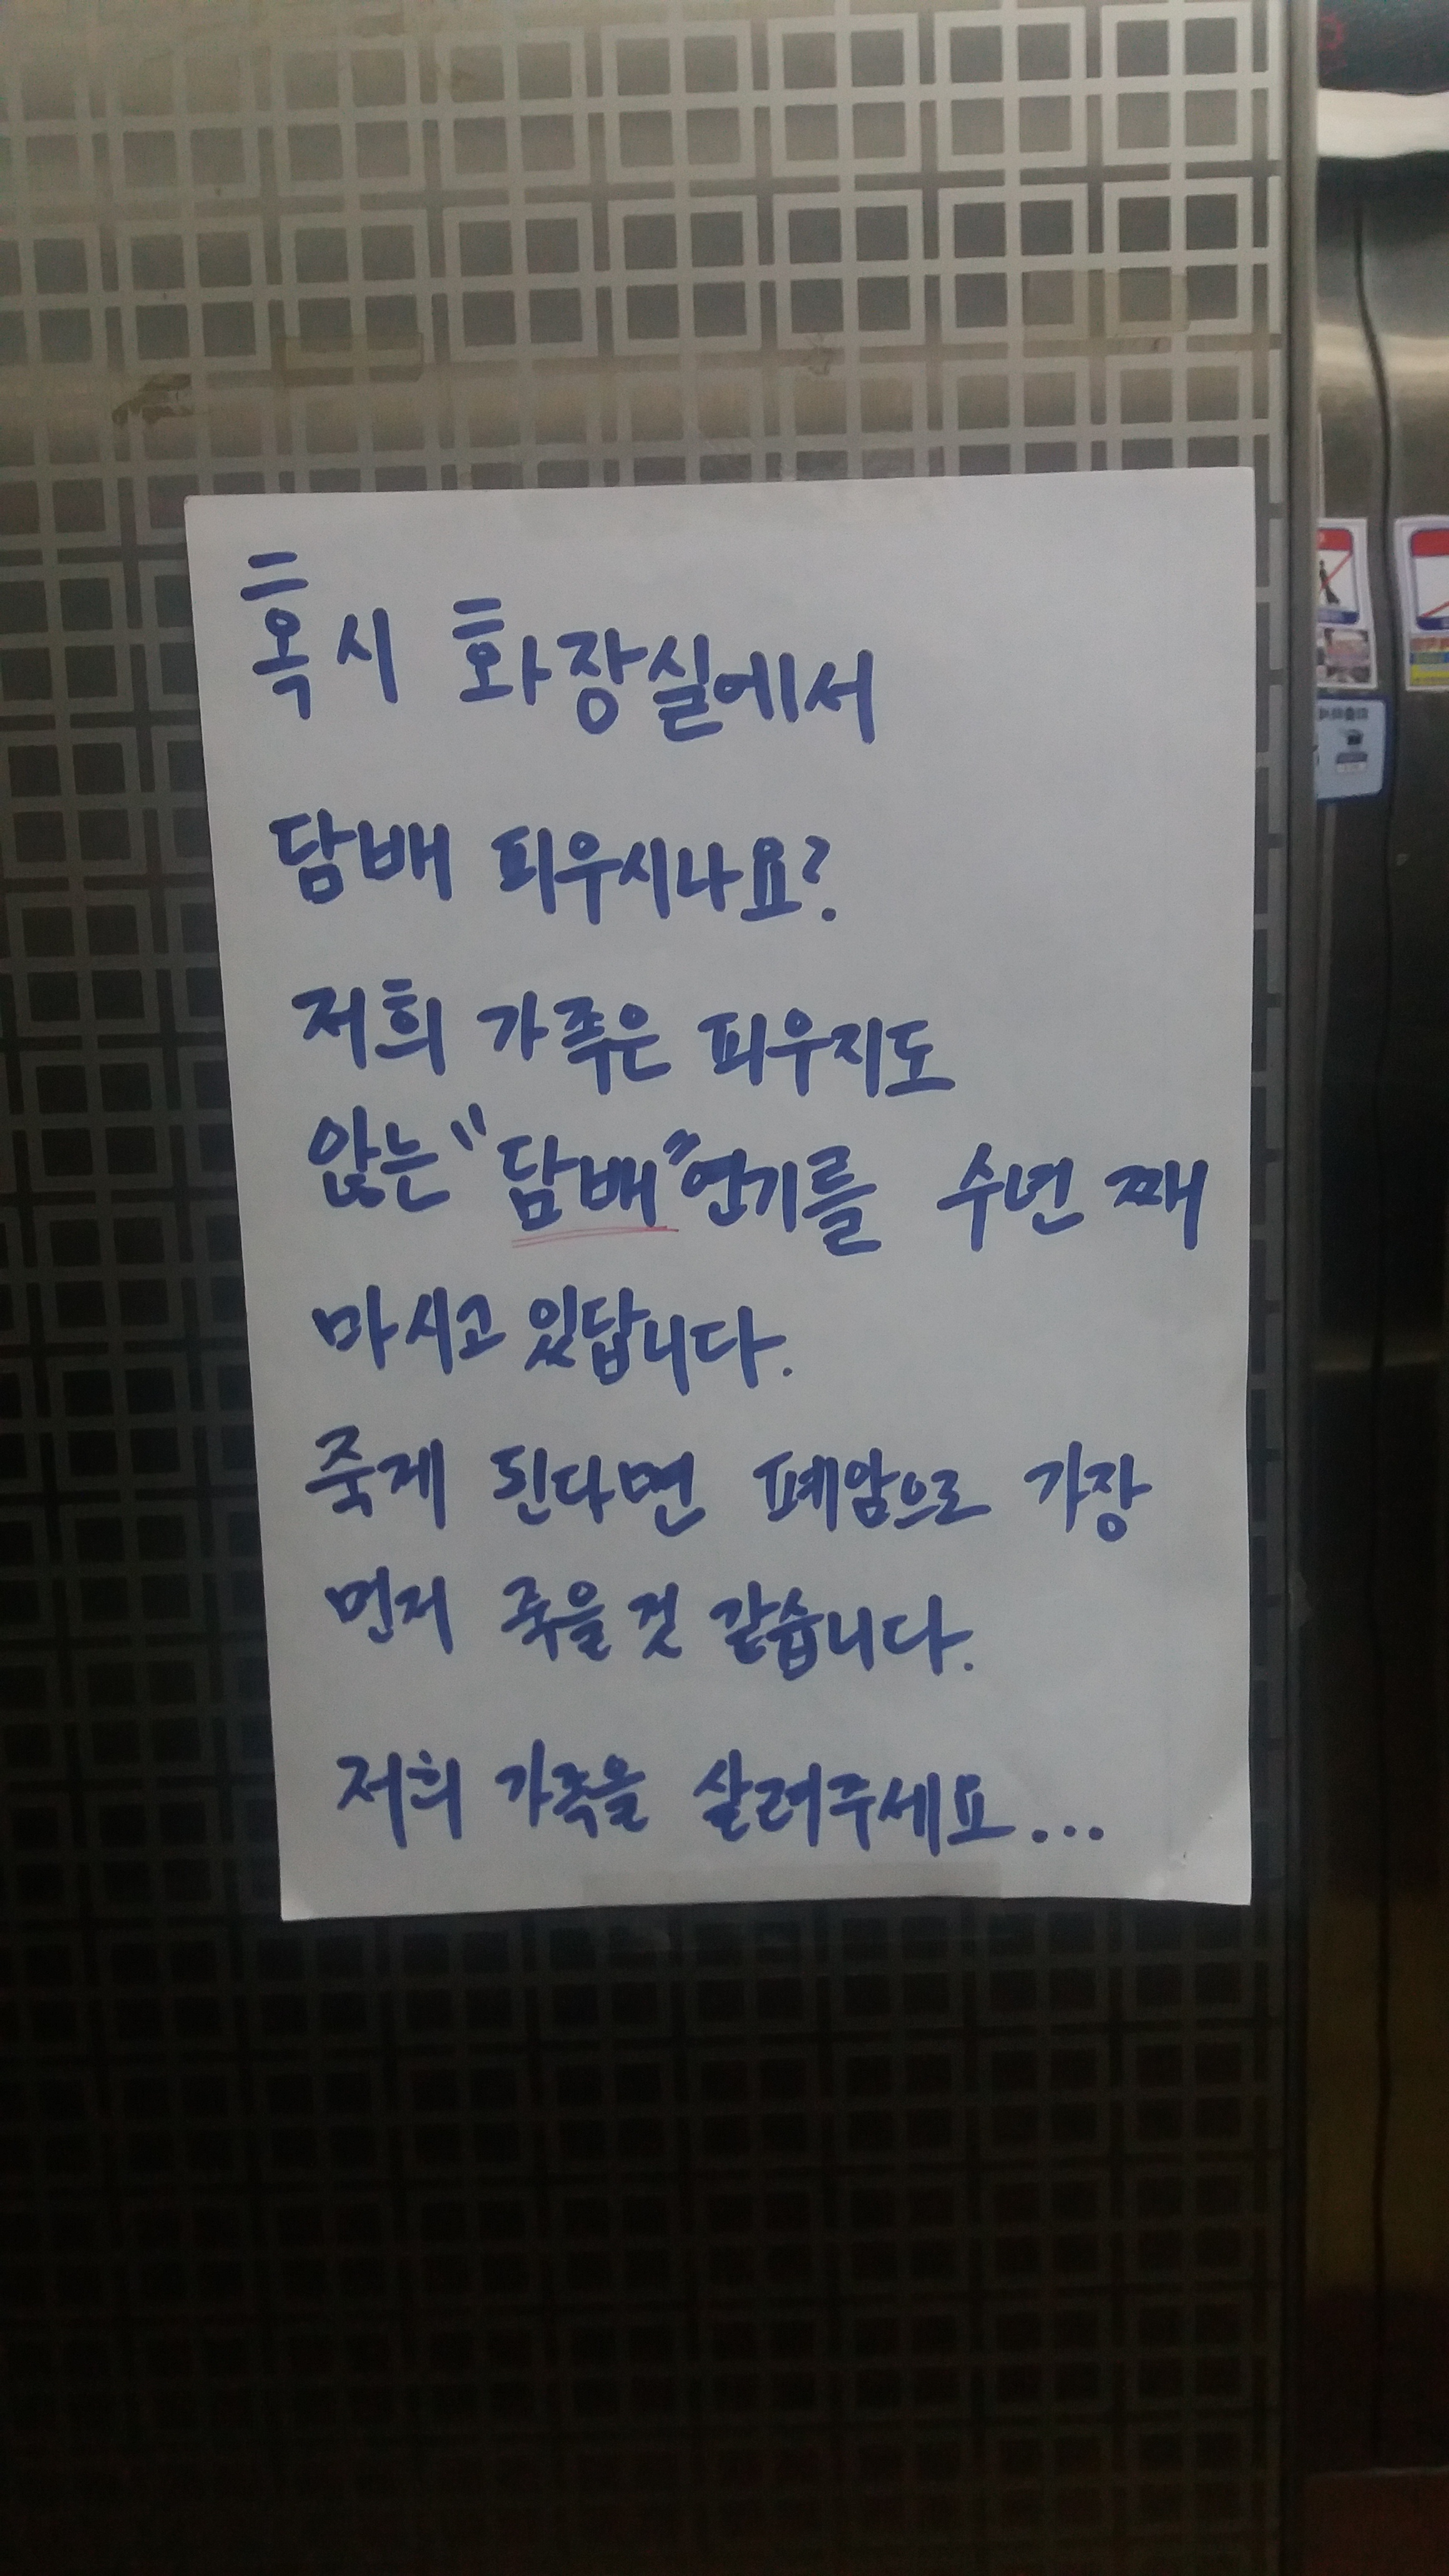 혹시 화장실에서
담배 피우시나요?
저희 가족은 피우지도
않는 "담배" 연기를 수년 째
마시고 있답니다.
죽게 된다면 폐암으로 가장
먼저 죽을 것 같습니다.
저희 가족을 살려주세요...